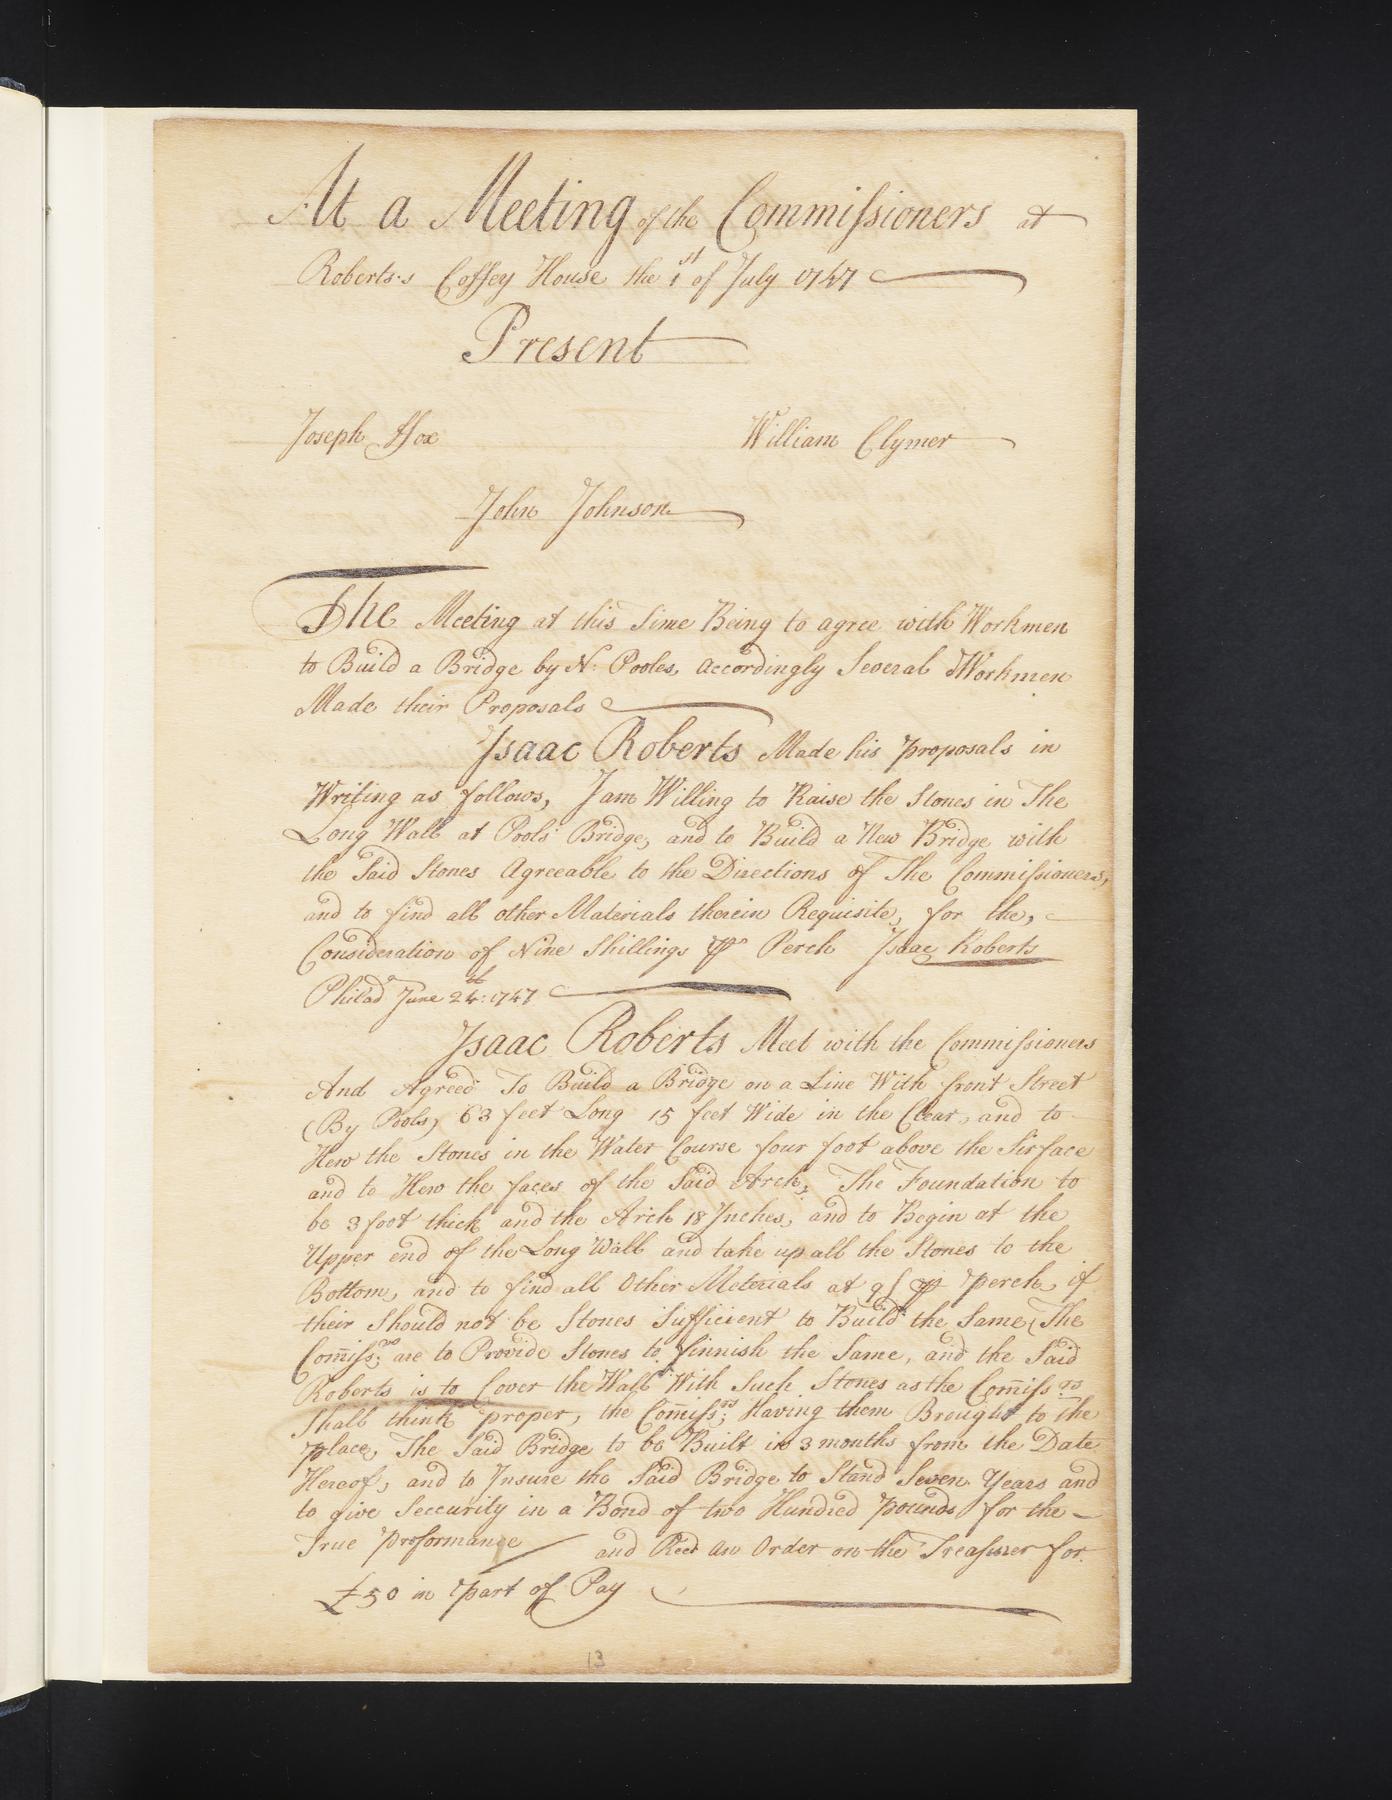 At a Meeting of the Commissioners at
Roberts's Coffey House the 1st of July 1747
Present
Joseph ffox William Clymer
John Johnson
The Meeting at this Time Being to agree with Workmen
to Build a Bridge by N. Pooles, accordingly Several Workmen
Made their Proposals
Isaac Roberts Made his proposals in
Writing as follows, I am Willing to Raise the Stones in The
Long Wall at Pools Bridge, and to Build a New Bridge with
the Said Stones Agreeable to the Directions of The Commissioners,
and to find all other Materials therein Requisite, for the,
Consideration of Nine Shillings ⅌ Perch Isaac Roberts
Philad June 24th: 1747
Isaac Roberts Meet with the Commissioners
And Agreed To Build a Bridge on a Line With front Street
(By Pools) 63 feet Long 15 feet Wide in the Clear, and to
Hew the Stones in the Water Course four foot above the Sirface
and to Hew the faces of the Said Arch, The Foundation to
be 3 foot thick and the Arch 18 Inches, and to Begin at the
Upper end of the Long Wall and take up all the Stones to the
Bottom, and to find all Other Meterials at 9s ⅌ perch, if
their Should not be Stones Sufficient to Build the Same, The
Comiss:rs are to Provide Stones to finnish the Same, and the Said
Roberts is to Cover the Wall With Such Stones as the Comissrs
Shall think proper, the Comiss:rs Having them Brought to the
place, The Said Bridge to be Built in 3 months from the Date
Hereof, and to Insure the Said Bridge to Stand Seven Years and
to give Seccurity in a Bond of two Hundred pounds for the
True proformance and Recd an Order on the Treasurer for
£50 in part of Pay
13